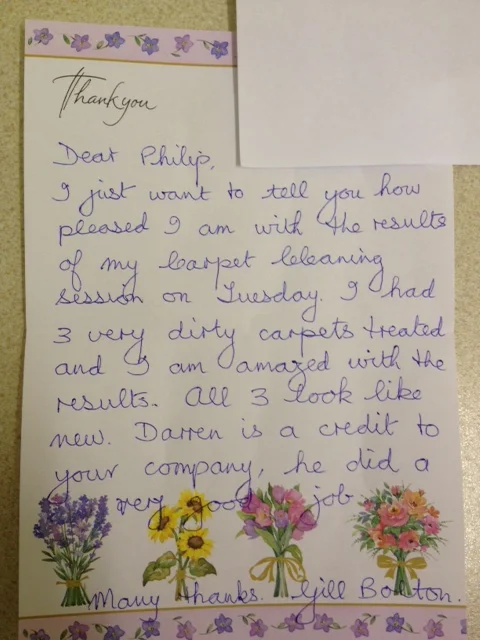 Thankyou
Dear Philip,
I just want to tell you how
pleased I am with the results
of my Carpet Cleaning
session on Tuesday. I had
3 very dirty carpets treated
and I am amazed with the
results. All 3 look like
new. Darren is a credit to
your company, he did a
very good job
Many thanks. Gill Bolton.